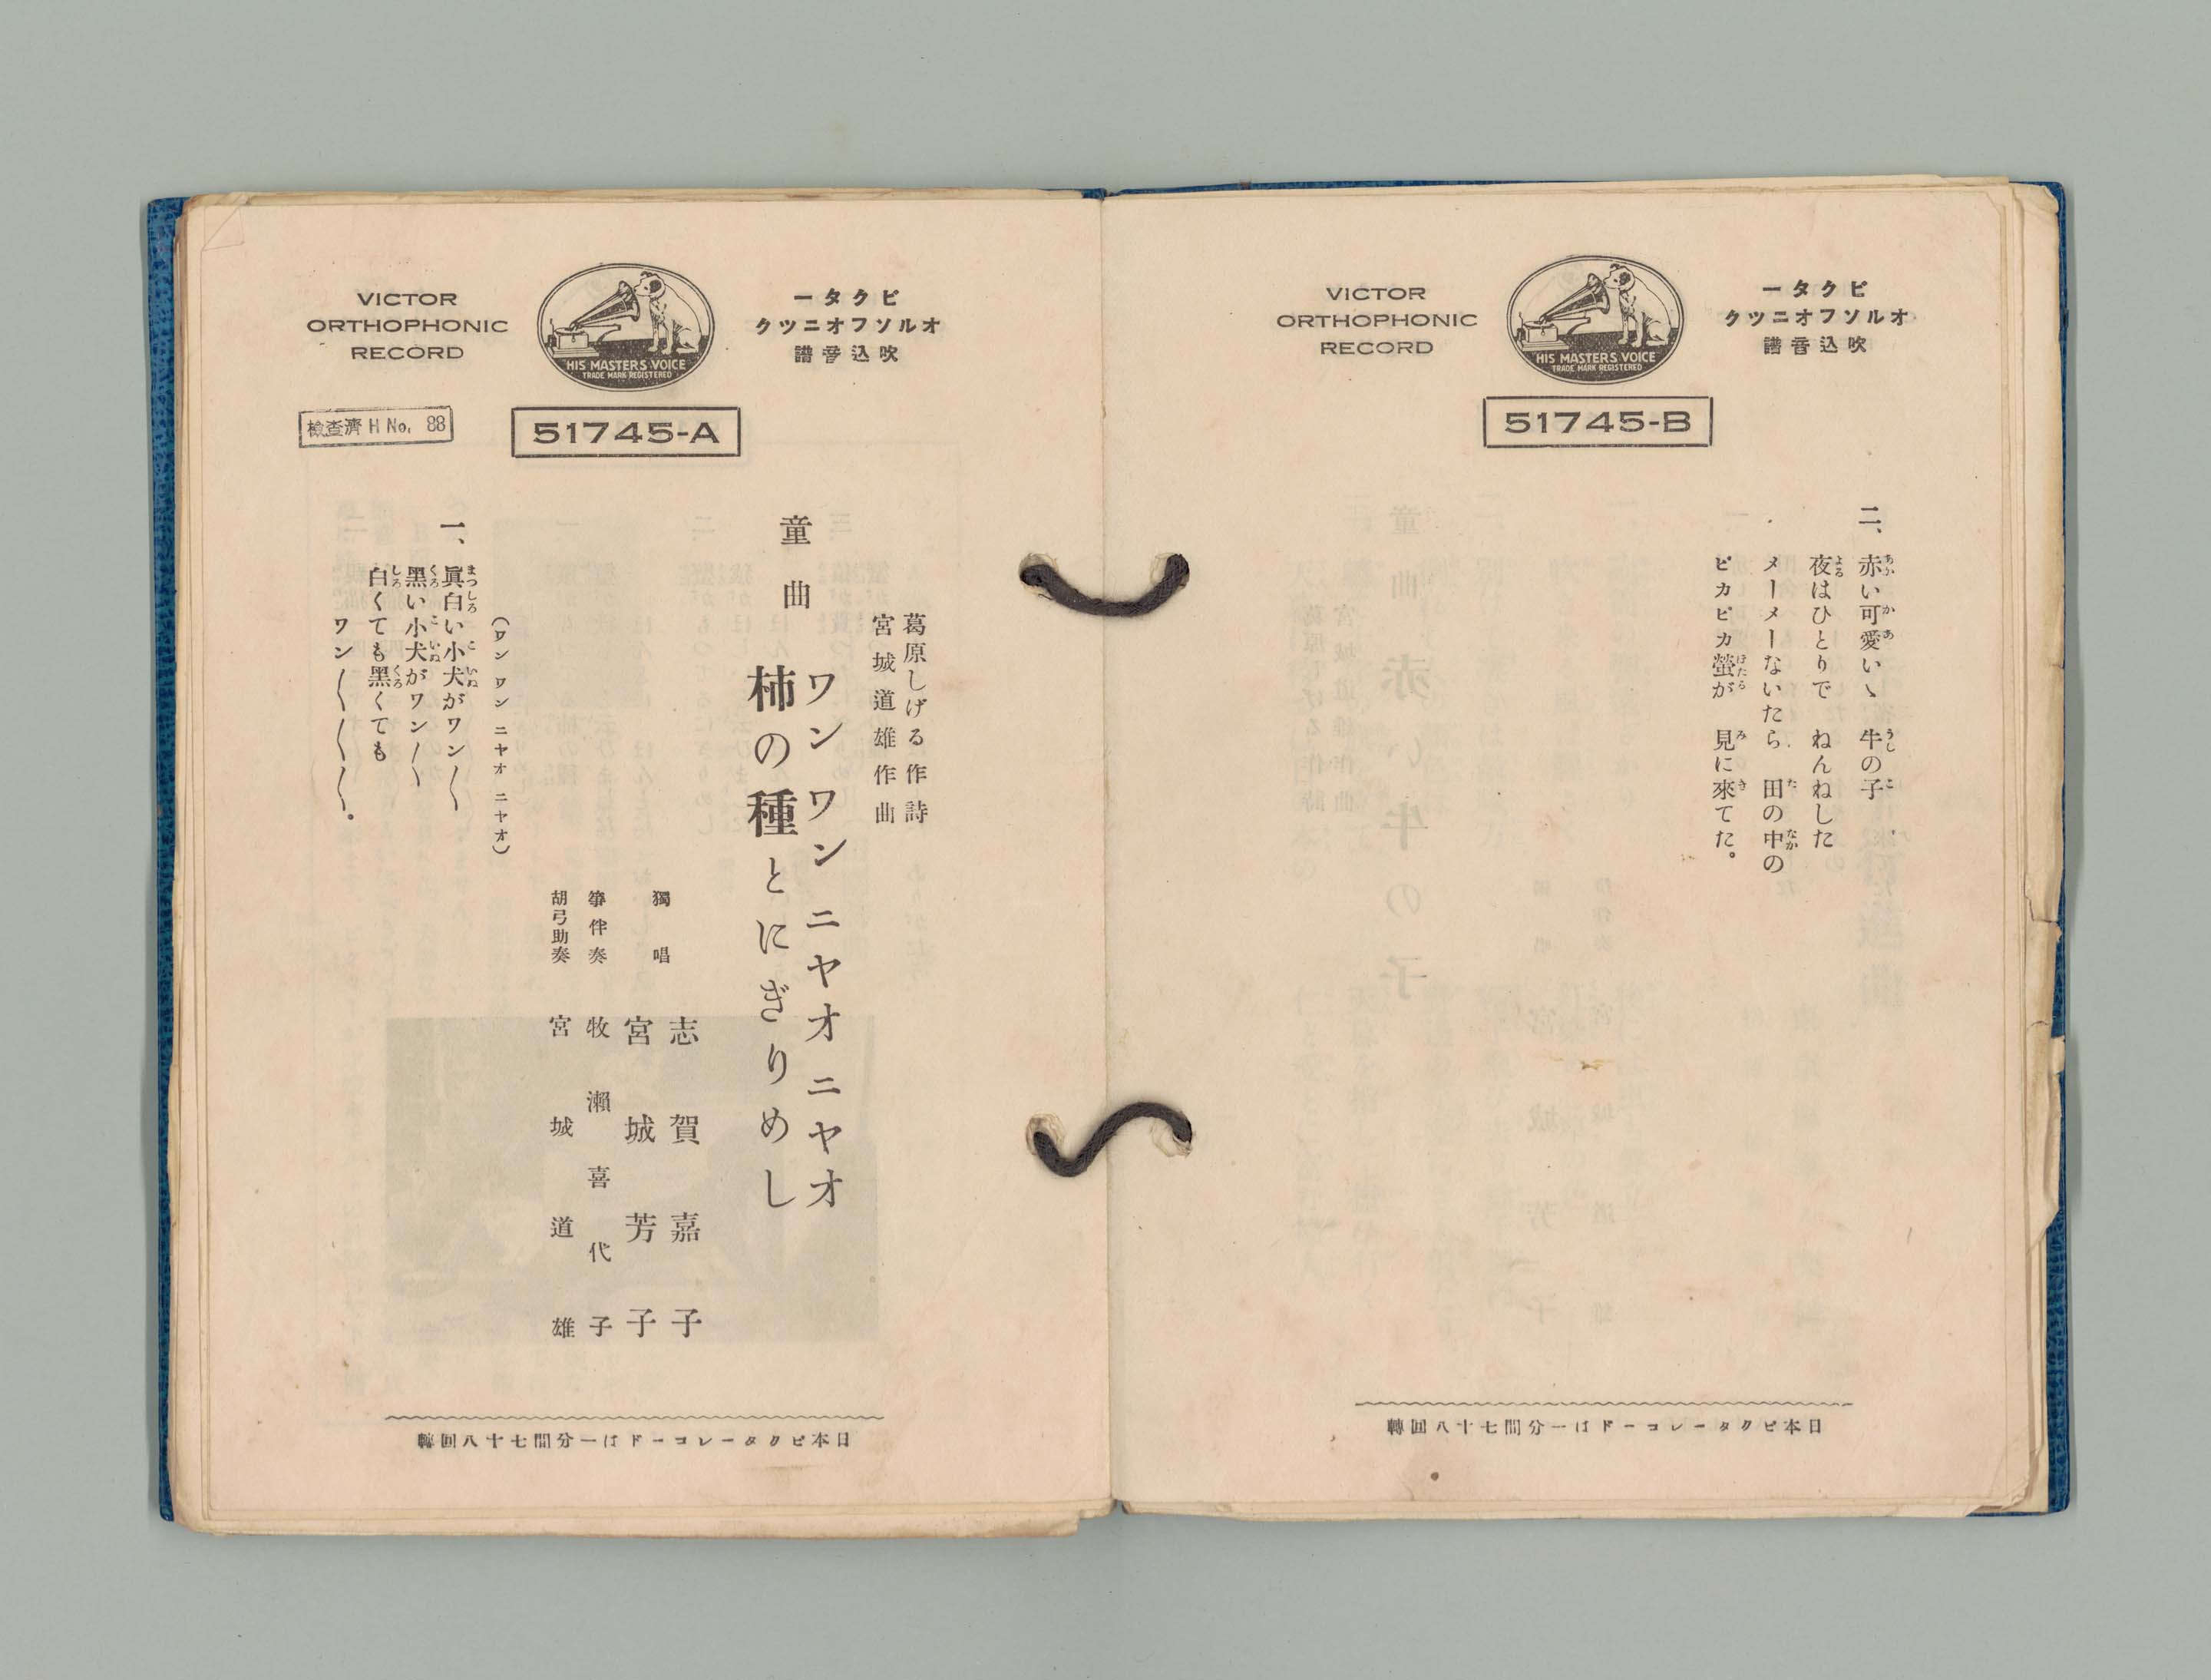 VICTOR
ORTHOPHONIC
RECORD
HIS MASTERS VOICE
TRADE MARK REGISTERED
ビクター
オルソフオニツク
吹込音譜
51745-B
二、赤い可愛いゝ 牛の子
夜はひとりで ねんねした
メーメーないたら 田の中の
ピカピカ螢が 見に來てた。
日本ビクターレコードは一分間七十八回轉
VICTOR
ORTHOPHONIC
RECORD
HIS MASTERS VOICE
TRADE MARK REGISTERED
ビクター
オルソフオニツク
吹込音譜
檢査濟 H No. 88
51745-A
葛原しげる作詩
宮城道雄作曲
童曲
ワンワン ニヤオニヤオ
柿の種とにぎりめし
獨唱 志賀嘉子
宮城芳子
箏伴奏 牧瀬喜代子
胡弓助奏 宮城道雄
(ワンワン ニヤオ ニヤオ)
一、眞白い小犬がワン〱
黑い小犬がワン〱
白くても黑くても
ワン〱〱〱。
日本ビクターレコードは一分間七十八回轉